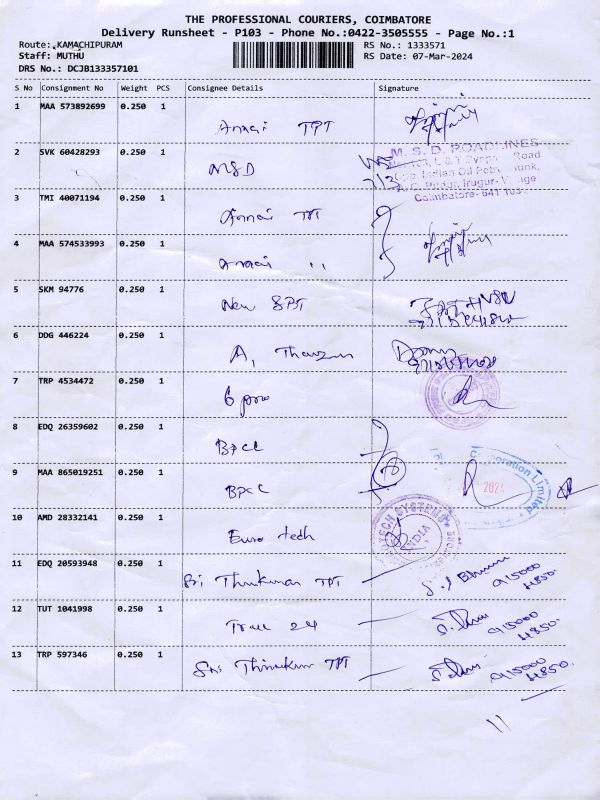 THE PROFESSIONAL COURIERS, COIMBATORE
Delivery Runsheet - P103 - Phone No.:0422-3505555 - Page No.:1
Route: KAMACHIPURAM RS No.: 1333571
Staff: MUTHU RS Date: 07-Mar-2024
DRS No.: DCJB133357101
S No Consignment No Weight PCS Consignee Details Signature
1 MAA 573892699 0.250 1
Annai TPT
2 SVK 60428293 0.250 1
MSD
M. S. D. ROADLINES
Road
Indian Oil
Irugur
Coimbatore- 641 103
3 TMI 40071194 0.250 1
Annai TPT
4 MAA 574533993 0.250 1
Annai ,,
5 SKM 94776 0.250 1
New SPT
6 DDG 446224 0.250 1
A,
7 TRP 4534472 0.250 1
8 EDQ 26359602 0.250 1
BPCL
9 MAA 865019251 0.250 1
BPCL
Corporation Limited
10 AMD 28332141 0.250 1
Euro tech
TECH SYSTEMS
INDIA
11 EDQ 20593948 0.250 1
Sri TPT
915000
4850.
12 TUT 1041998 0.250 1
24
915000
4850.
13 TRP 597346 0.250 1
Sri TPT
915000
4850.